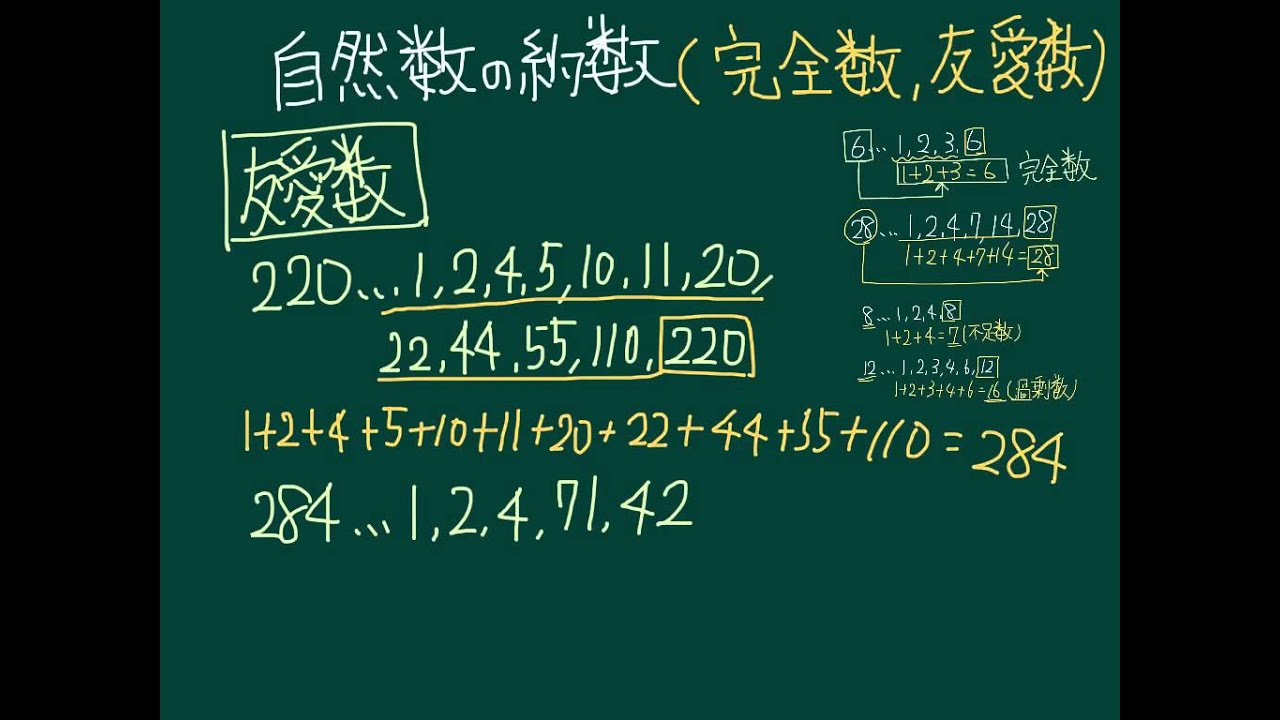 自然数の約数(完全数,友愛数)
友愛数
220…1,2,4,5,10,11,20,
22,44,55,110,220
1+2+4+5+10+11+20+22+44+55+110=284
284…1,2,4,71,42
6…1,2,3,6
1+2+3=6 完全数
28…1,2,4,7,14,28
1+2+4+7+14=28
8…1,2,4,8
1+2+4=7(不足数)
12…1,2,3,4,6,12
1+2+3+4+6=16(過剰数)